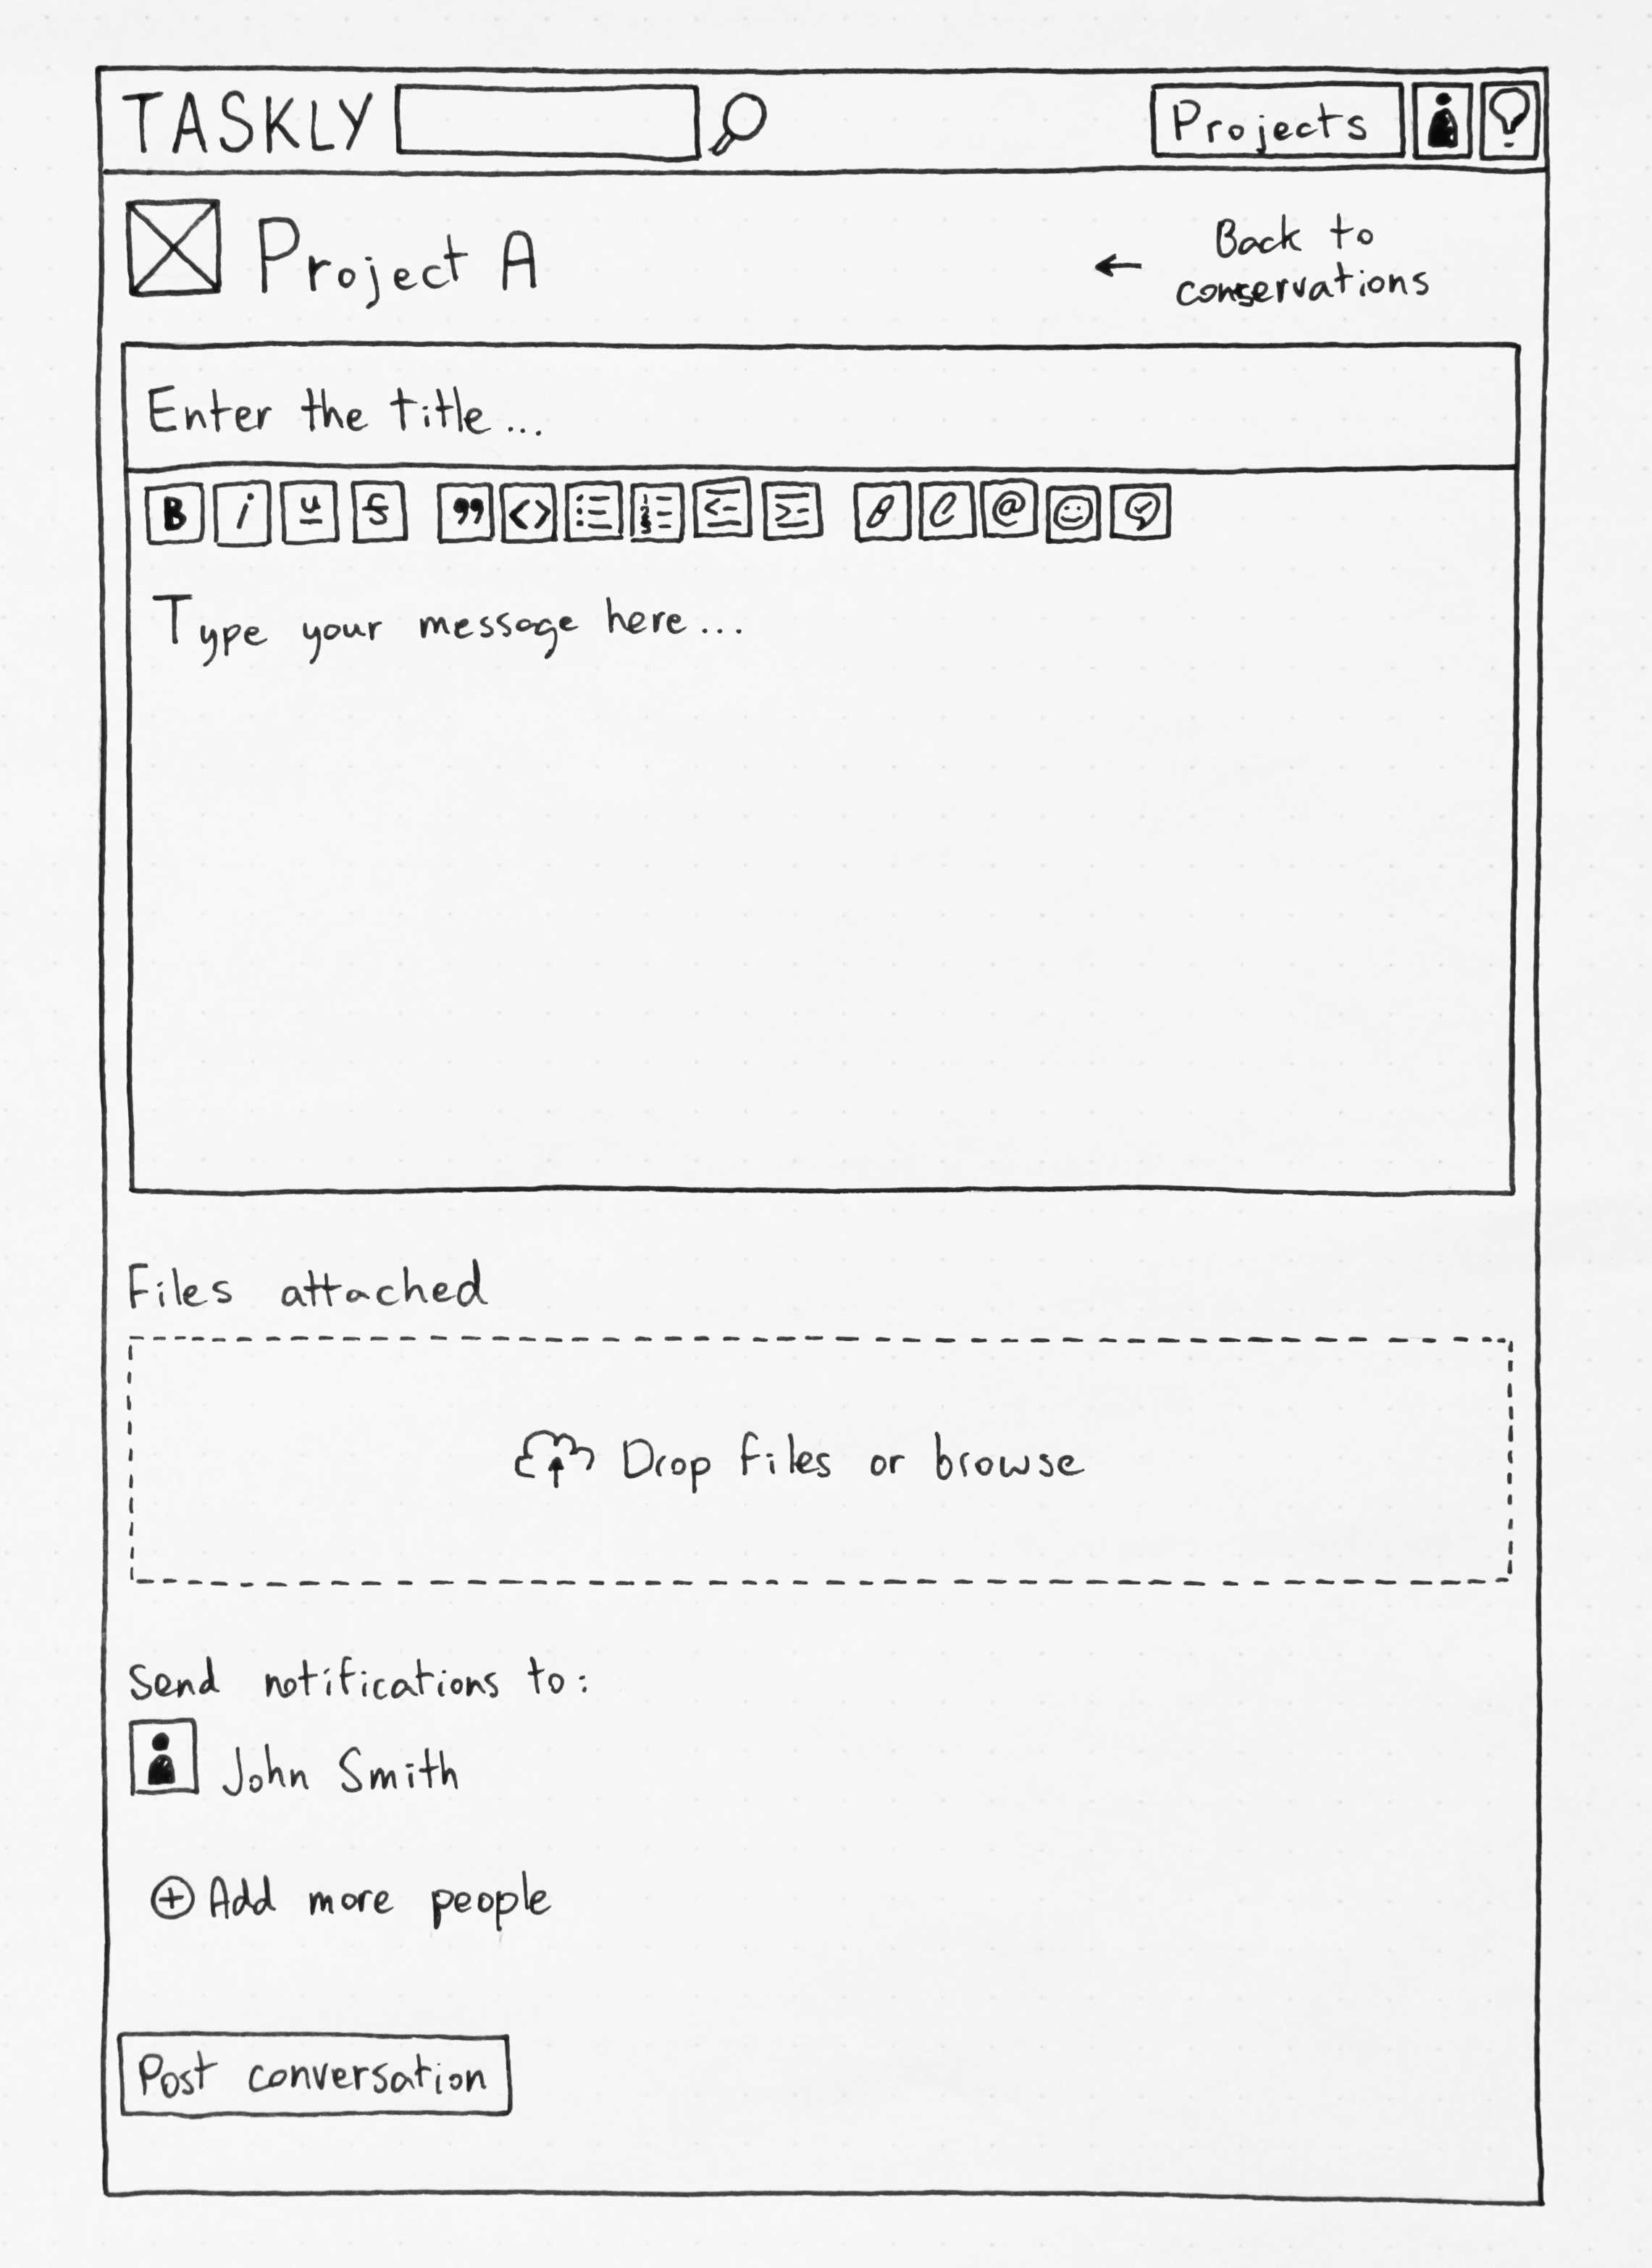 TASKLY
Projects
Project A
← Back to
conservations
Enter the title...
B i U S ” <> @
Type your message here...
Files attached
Drop files or browse
Send notifications to:
John Smith
+ Add more people
Post conversation